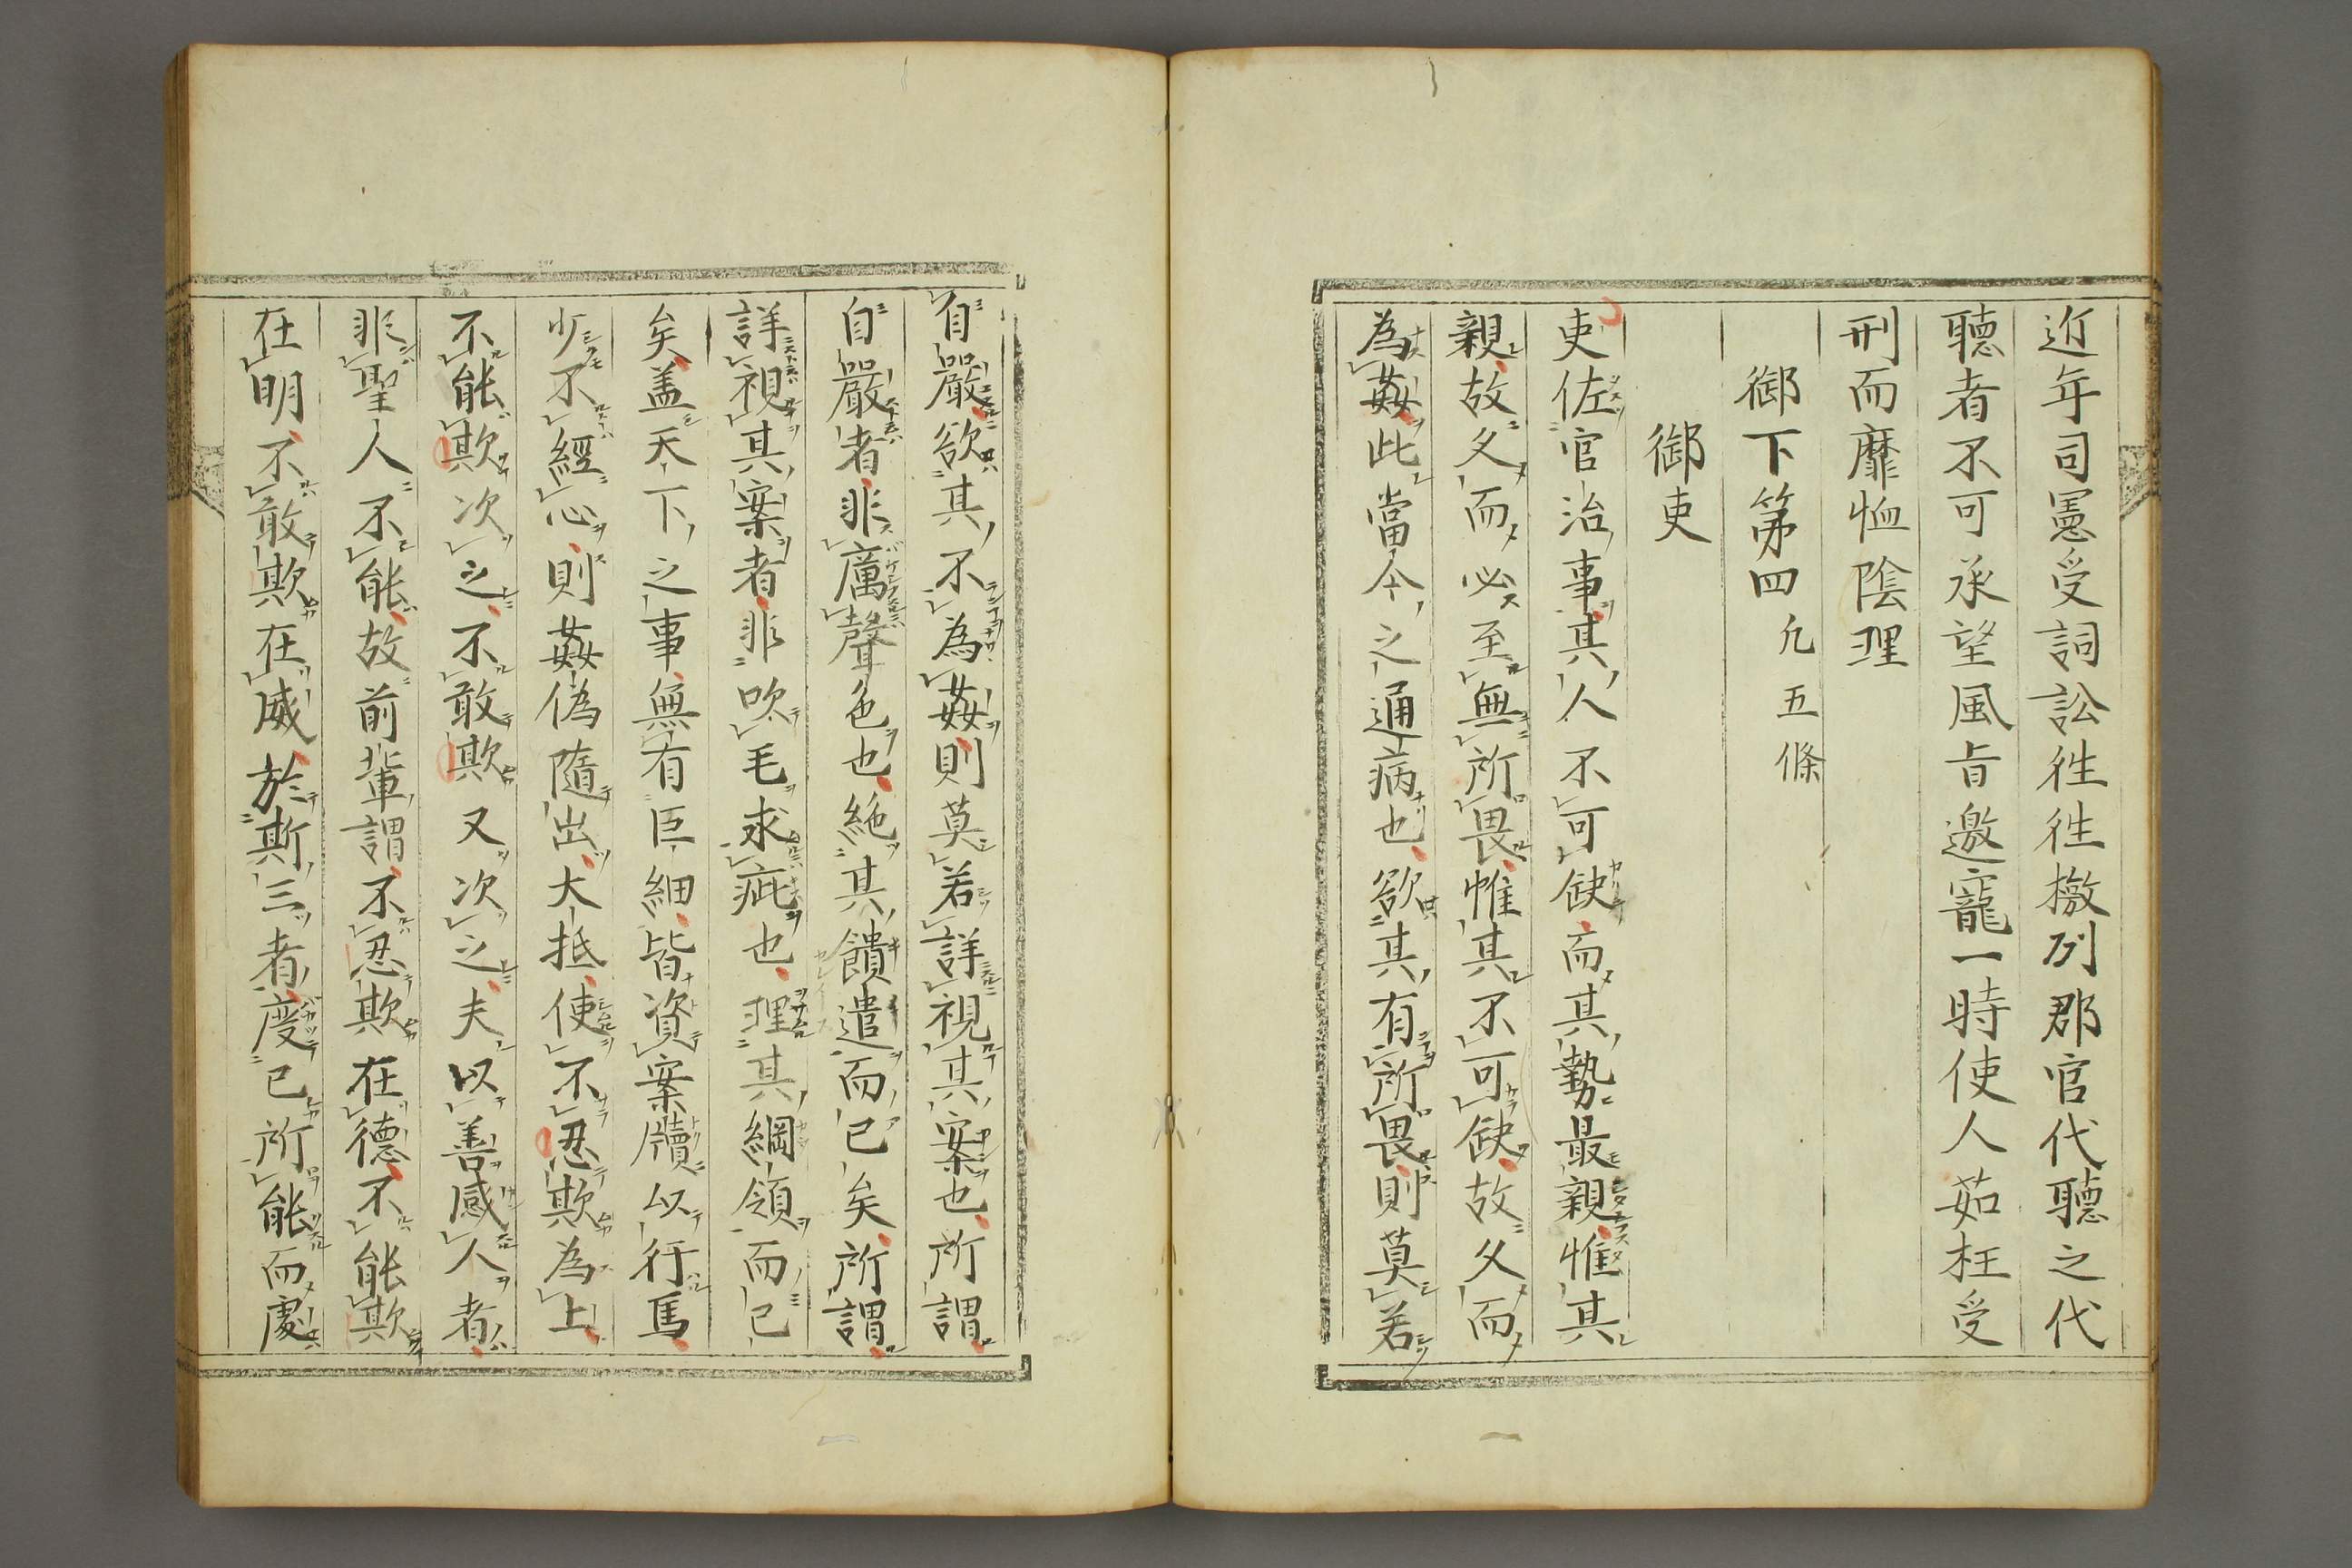 近年司憲受詞訟徃徃檄列郡官代聽之代
聽者不可承望風㫖邀寵一時使人茹枉受
刑而靡恤隂理
御下第四 凢五條
御吏
吏佐官治事其人不可缺而其勢最親惟其
親故久而必至無所畏惟其不可缺故久而
為姦此當今之通病也欲其有所畏則莫若
自嚴欲其不為姦則莫若詳視其案也所謂
自嚴者非厲聲色也絶其饋遺而已矣所謂
詳視其案者非吹毛求疵也理其綱領而已
矣盖天下之事無有巨細皆資案牘以行焉
少不經心則姦偽隨出大抵使不忍欺為上
不能欺次之不敢欺又次之夫以善感人者
非聖人不能故前輩謂不忍欺在德不能欺
在明不敢欺在威於斯三者度已所能而處